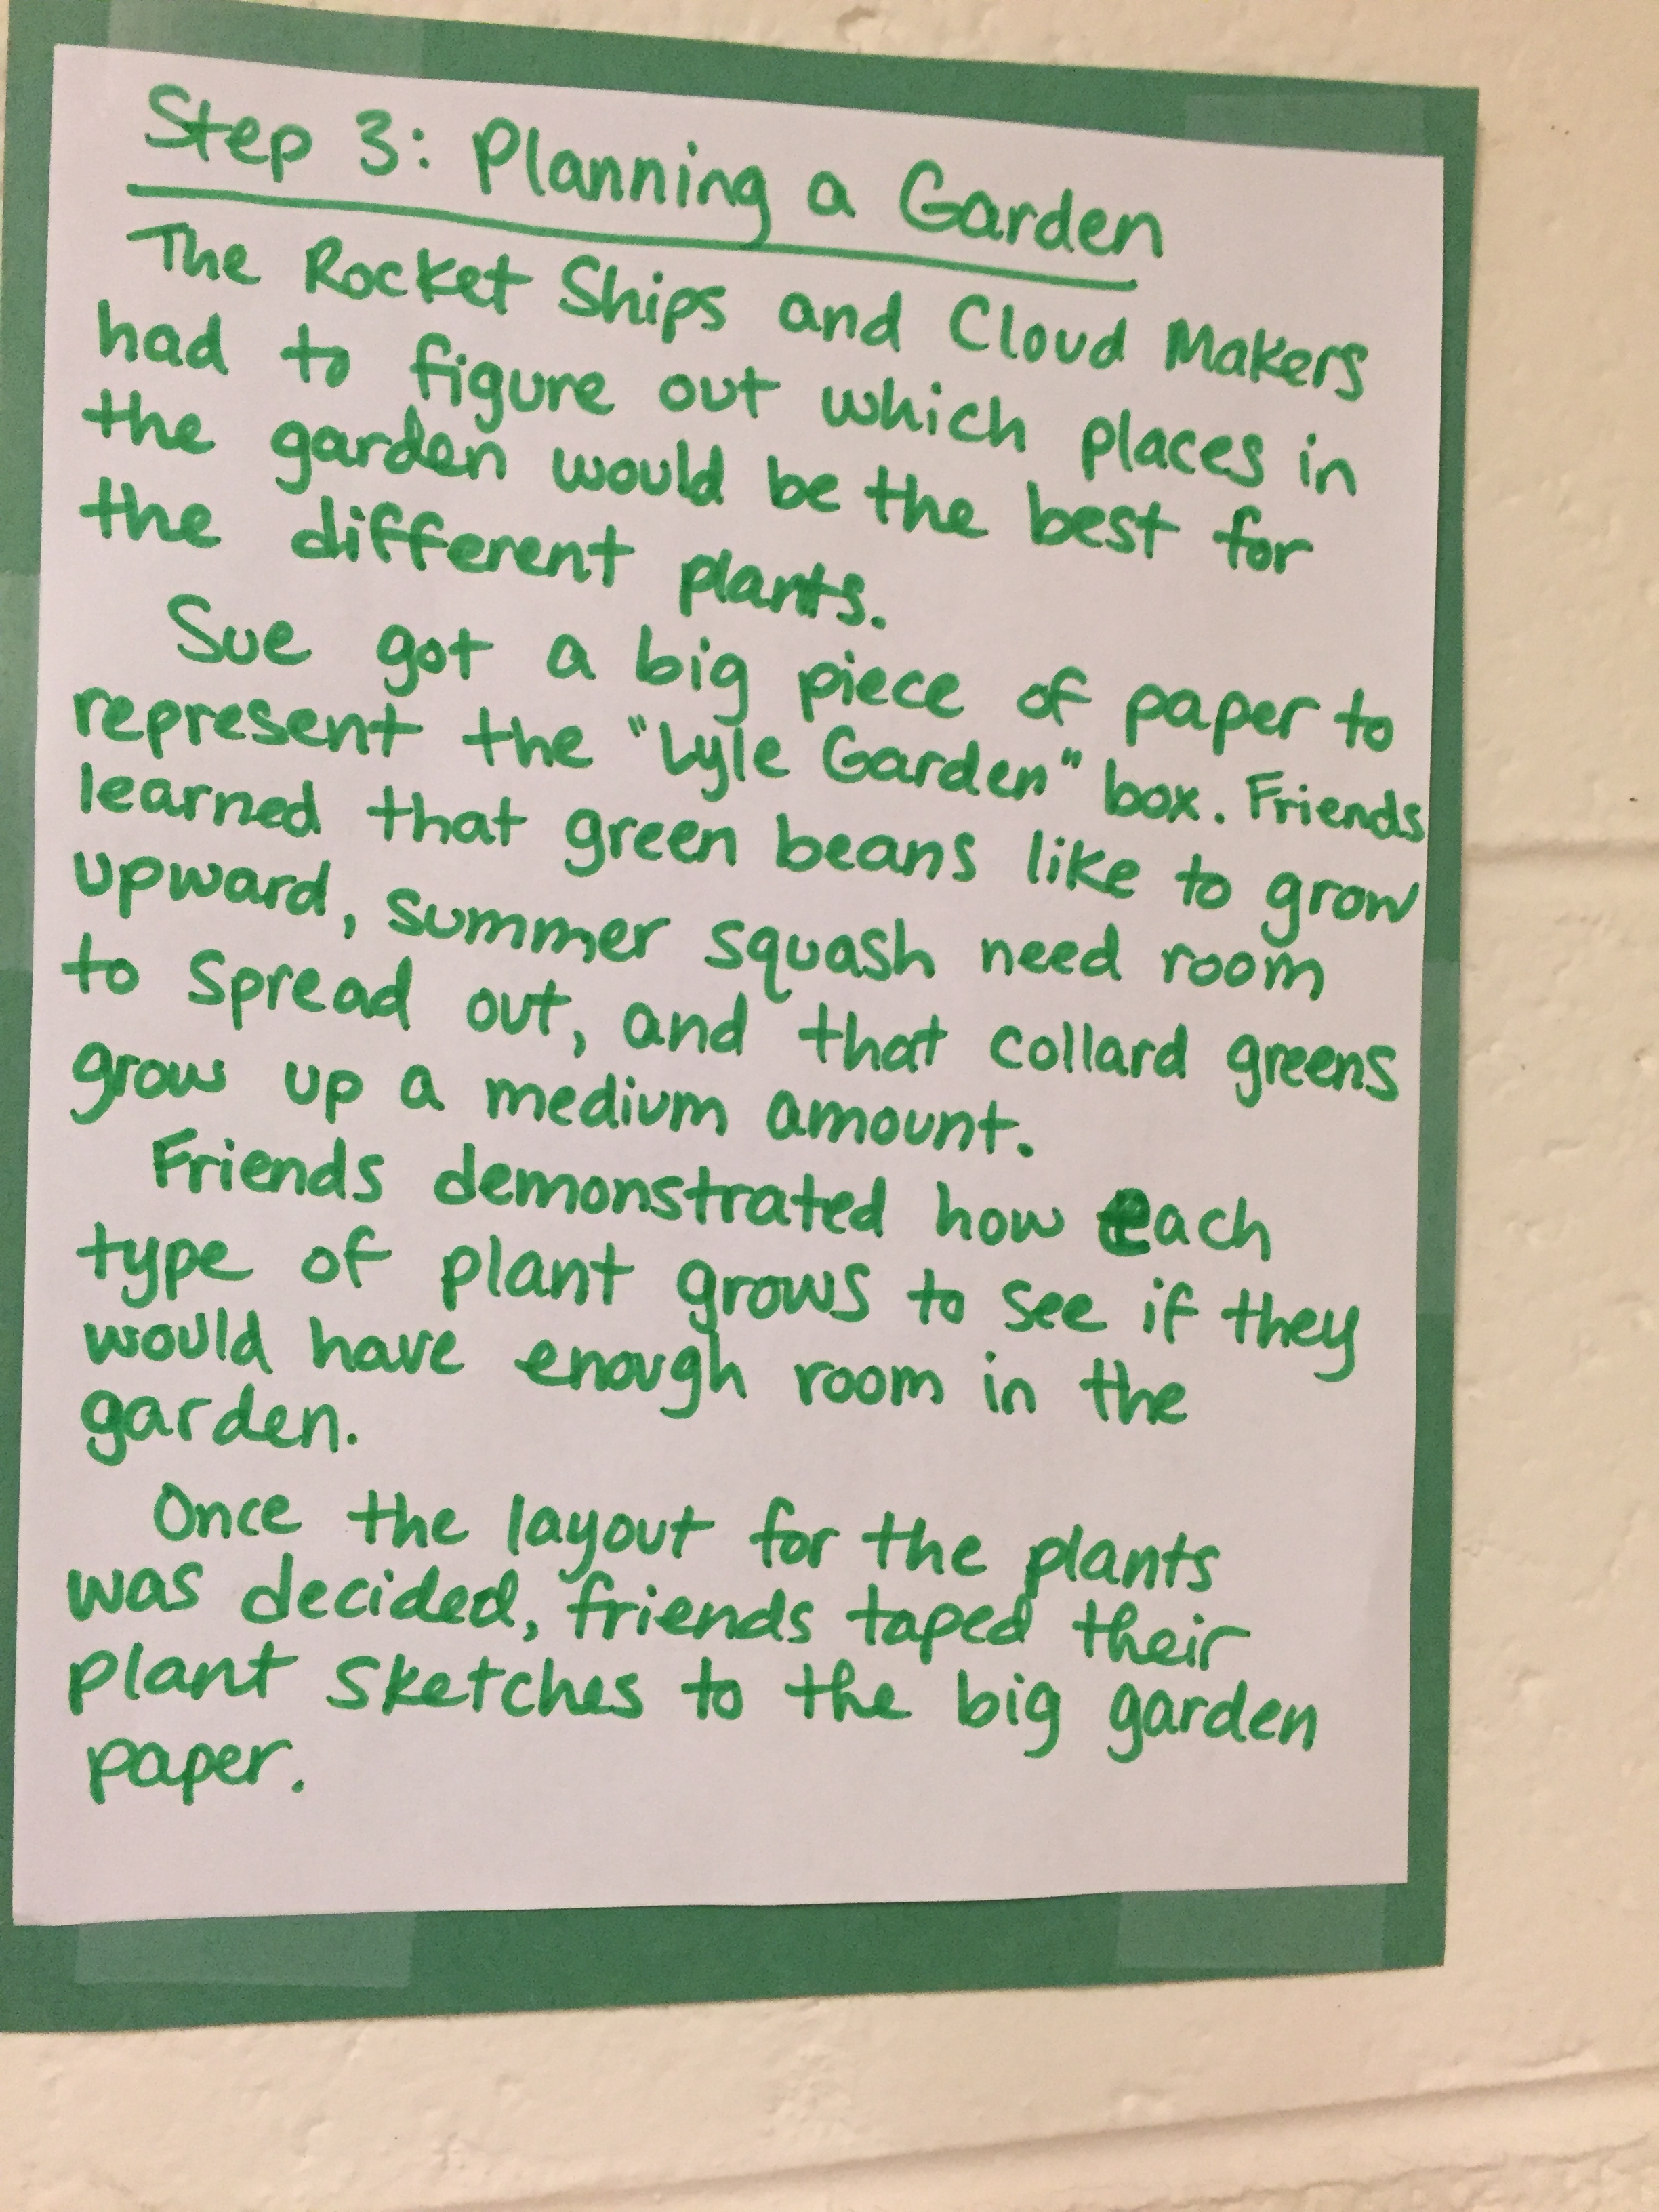 Step 3: Planning a Garden
The Rocket Ships and Cloud Makers
had to figure out which places in
the garden would be the best for
the different plants.
Sue got a big piece of paper to
represent the "Lyle Garden" box. Friends
learned that green beans like to grow
upward, summer squash need room
to spread out, and that collard greens
grow up a medium amount.
Friends demonstrated how each
type of plant grows to see if they
would have enough room in the
garden.
Once the layout for the plants
was decided, friends taped their
plant sketches to the big garden
paper.